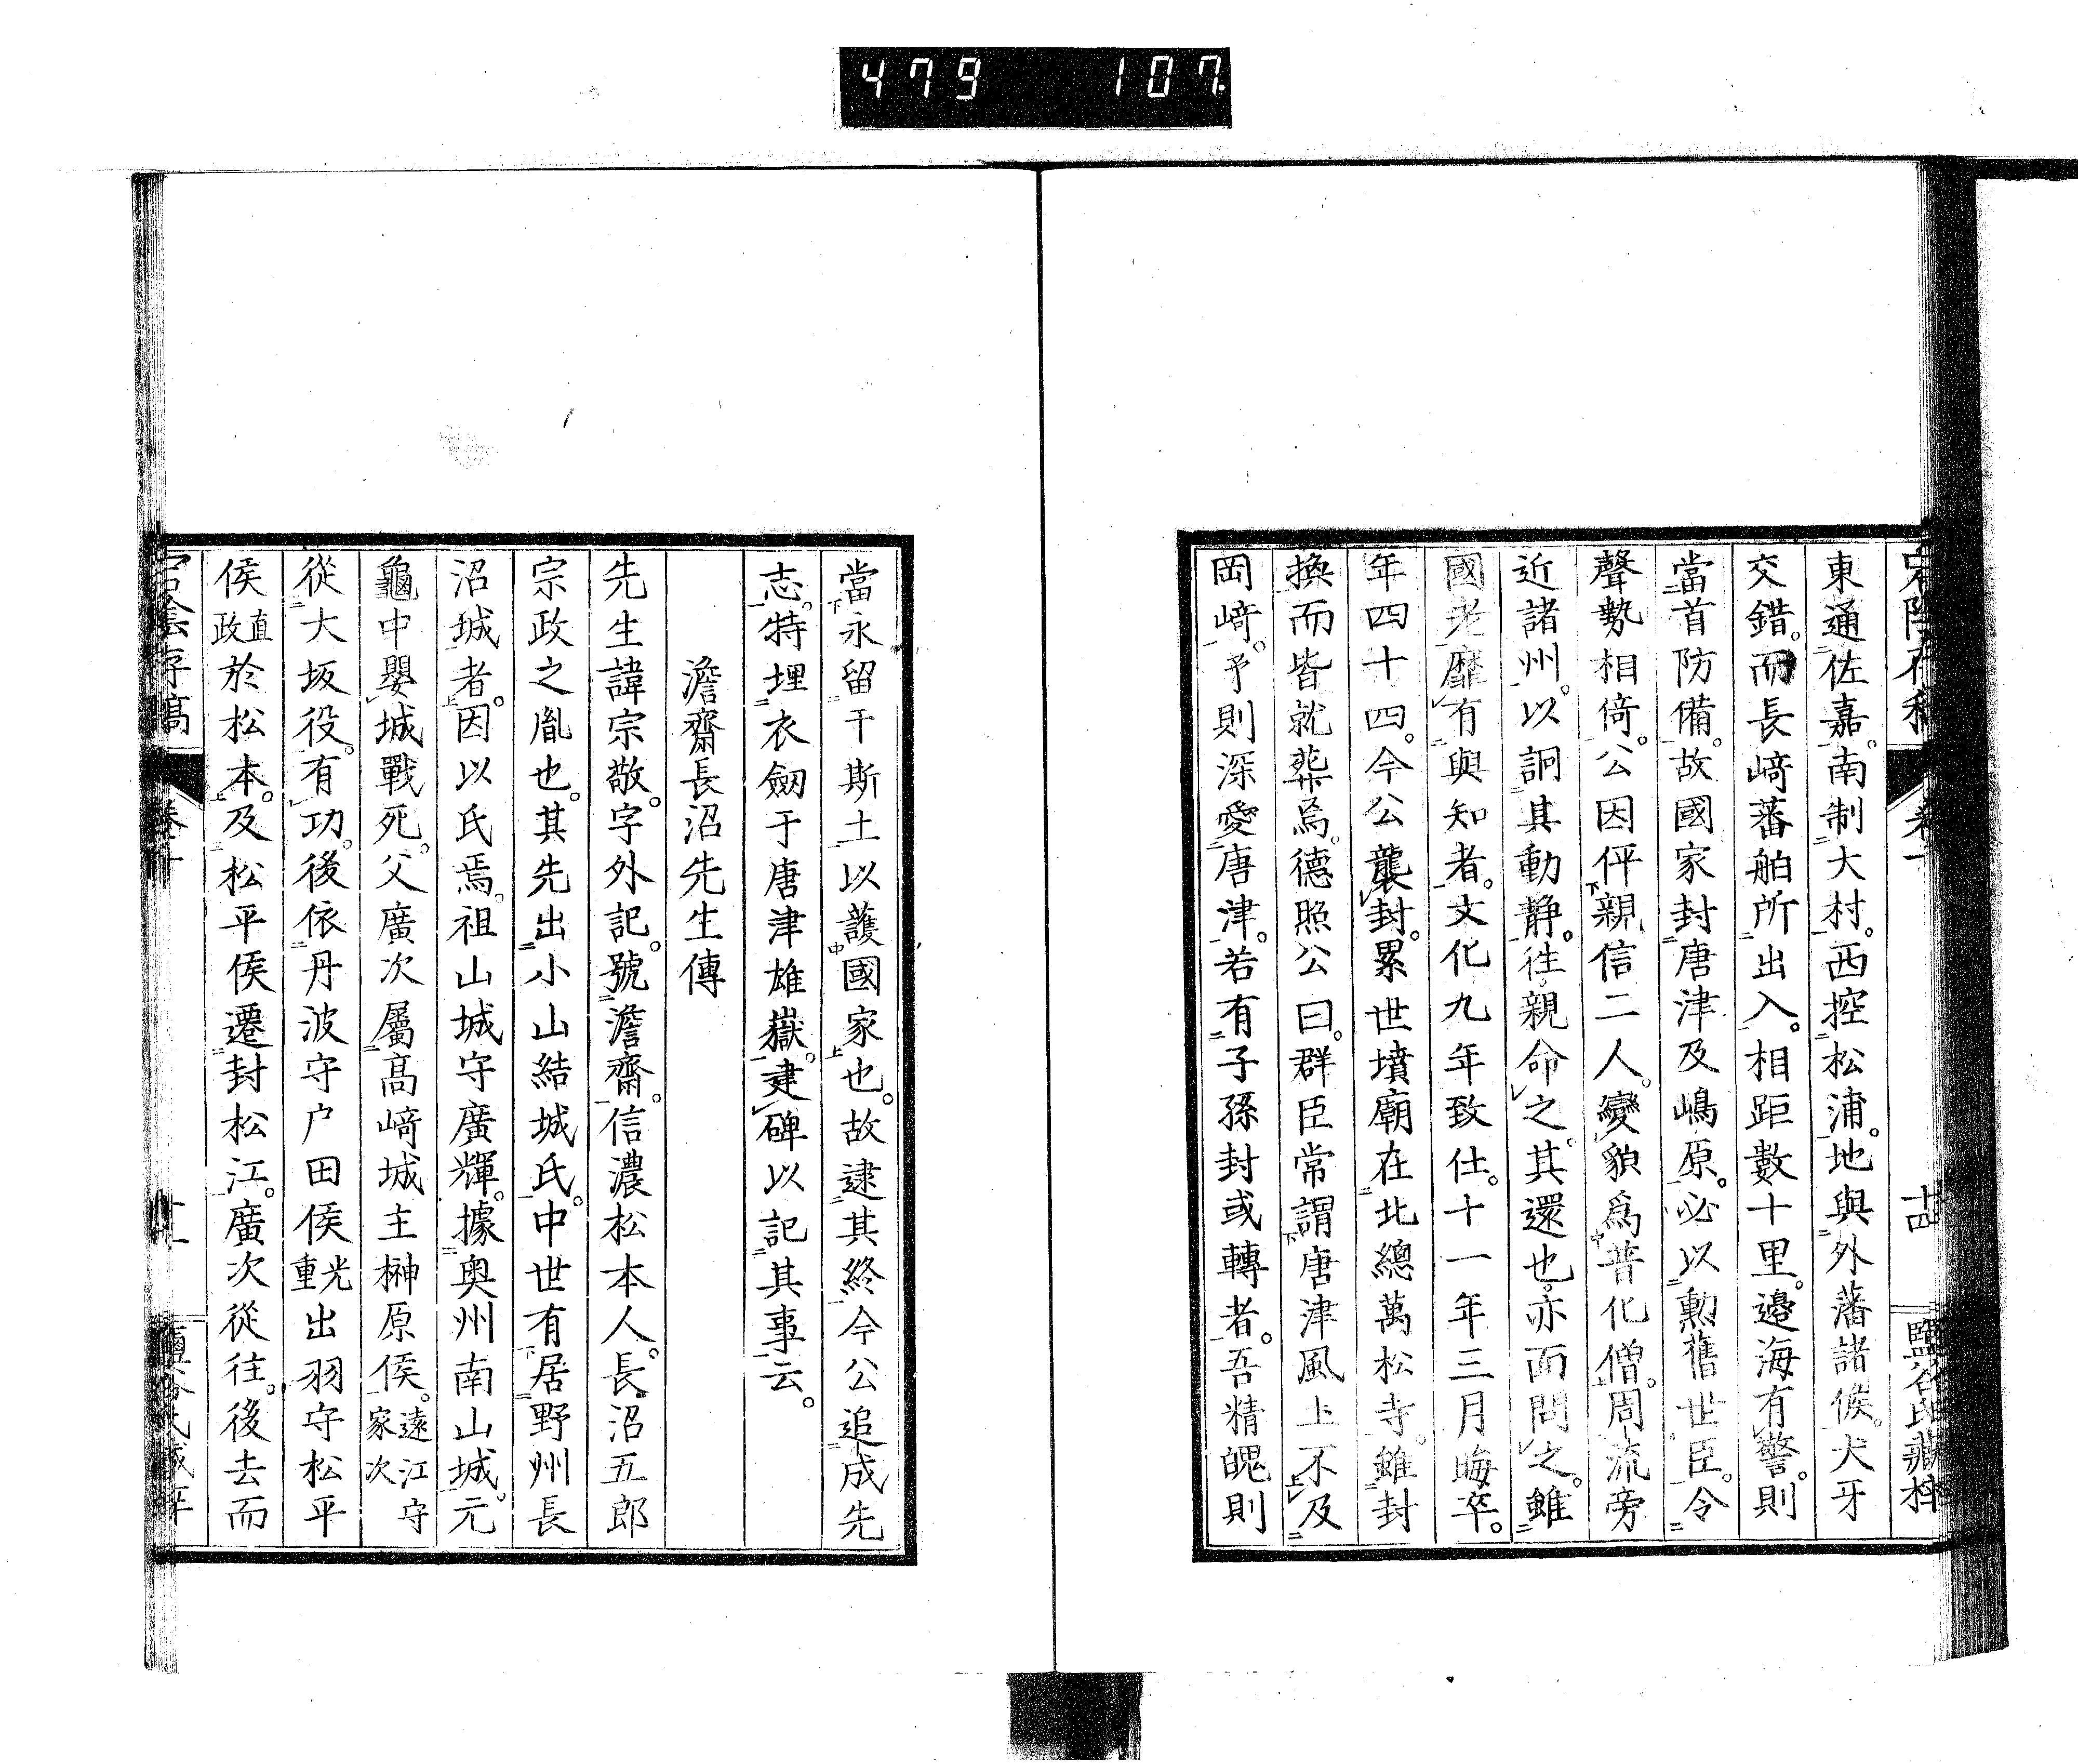 479 107
十四
東通佐嘉。南制大村。西控松浦。地與外藩諸侯。犬牙
交錯。而長﨑蕃舶所出入。相距數十里。邊海有警。則
當首防備。故國家封唐津及嶋原。必以勳舊世臣。令
聲勢相倚。公因伻親信二人。變貌爲普化僧。周流旁
近諸州。以詗其動靜。徃。親命之。其還也。亦面問之。雖
國老。靡有與知者。文化九年致仕。十一年三月晦卒。
年四十四。今公襲封。累世墳廟在北總萬松寺。雖封
換而皆就葬焉。德照公曰。群臣常謂唐津風土不及
岡﨑。予則深愛唐津。若有子孫封或轉者。吾精魄則
當永留干斯土以護國家也。故逮其終今公追成先
志。特埋衣劒于唐津雄嶽。建碑以記其事云。
澹齋長沼先生傳
先生諱宗敬。字外記。號澹齋。信濃松本人。長沼五郎
宗政之胤也。其先出小山結城氏。中世有居野州長
沼城者。因以氏焉。祖山城守廣輝。據奥州南山城。元
龜中嬰城戰死。父廣次屬髙﨑城主榊原侯。遠江守家次
從大坂役。有功。後依丹波守户田侯光重出羽守松平
侯直政於松本。及松平侯遷封松江。廣次從往。後去而
宕陰存稿 卷十